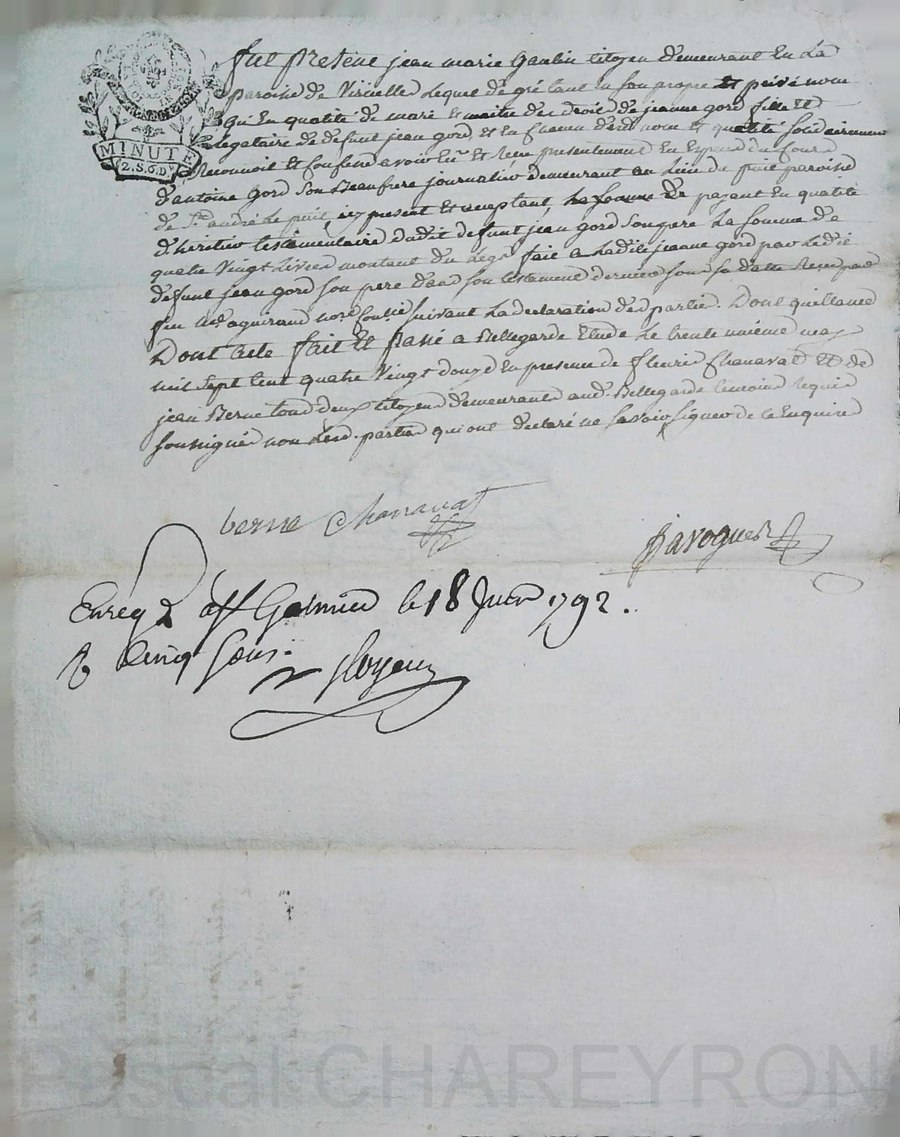 MINUTE
2.S.6.Ds
fut presené jean marie Gaulin citoyen demeurant En La
paroise de Viricelle Lequel de gré tant En son propre et privé nom
qu'En qualité de marie et maitre des droit de jeanne gord fille Et
Legataire de defunt jean gord et En chacun d'Esd nom et qualité solidairement
Reconnoit et Confesse avoir Eu et Recu presentement En Espece du Cours
d'antoine gord Son Beaufrere journalier demeurant au Lieu du paroise
de St andré Le puit, icy present et acceptant, La somme de payant En qualité
d'heritier testamentaire dudit defunt jean gord Son pere La somme de
quatre Vingt Livres montant du Legs fait a Ladite jeanne gord par Ledit
defunt jean gord son pere dans son testament dernier sous sa datte Recu par
feu Me aguiraud nore suivant La declaration desd partie. Dont quittance
Dont acte fait Et passé a Bellegarde Etude Le trente unieme may
mil sept Cent quatre Vingt douze En presence de fleurie Chanavat Et de
jean Berne tous deux citoyen demeurants aud. Bellegarde temoins Requis
soussignés non Lesd. parties qui ont declaré ne savoir signer de ce Enquire
berne Chanavat
Enreg à St Galmier le 18 Juin 1792.
R cinq sous.
Pascal CHAREYRON